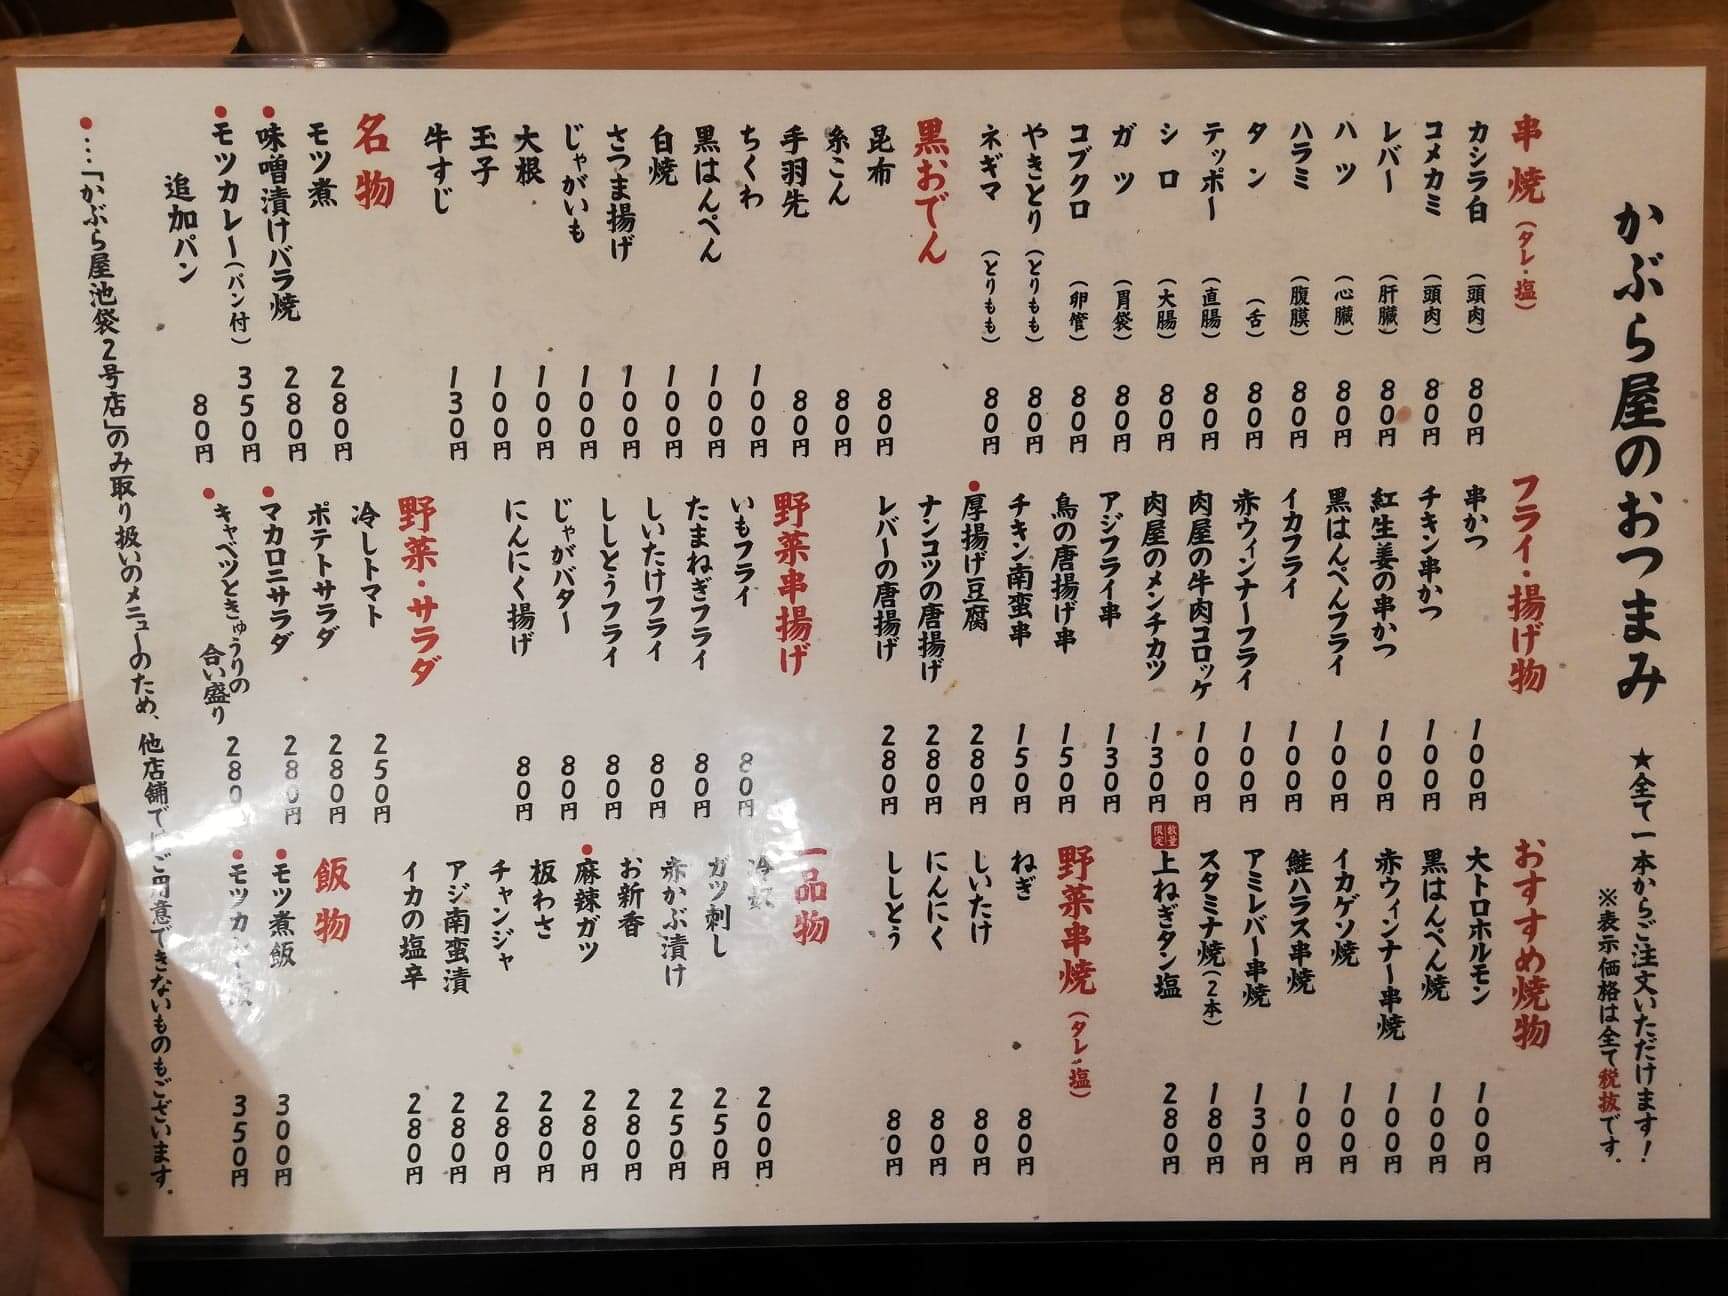 かぶら屋のおつまみ
★全て一本からご注文いただけます!
※表示価格は全て税抜です。
串焼(タレ・塩)
カシラ白(頭肉) 80円
コメカミ(頭肉) 80円
レバー(肝臓) 80円
ハツ(心臓) 80円
ハラミ(腹膜) 80円
タン(舌) 80円
テッポー(直腸) 80円
シロ(大腸) 80円
ガツ(胃袋) 80円
コブクロ(卵管) 80円
やきとり(とりもも) 80円
ネギマ(とりもも) 80円
黒おでん
昆布 80円
糸こん 80円
手羽先 80円
ちくわ 100円
黒はんぺん 100円
白焼 100円
さつま揚げ 100円
じゃがいも 100円
大根 100円
玉子 100円
牛すじ 130円
名物
モツ煮 280円
●味噌漬けバラ焼 280円
●モツカレー(パン付) 350円
追加パン 80円
フライ・揚げ物
串かつ 100円
チキン串かつ 100円
紅生姜の串かつ 100円
黒はんぺんフライ 100円
イカフライ 100円
赤ウィンナーフライ 100円
肉屋の牛肉コロッケ 100円
肉屋のメンチカツ 130円
アジフライ串 130円
鳥の唐揚げ串 150円
チキン南蛮串 150円
●厚揚げ豆腐 280円
ナンコツの唐揚げ 280円
レバーの唐揚げ 280円
野菜串揚げ
いもフライ 80円
たまねぎフライ 80円
しいたけフライ 80円
ししとうフライ 80円
じゃがバター 80円
にんにく揚げ 80円
野菜・サラダ
冷しトマト 250円
ポテトサラダ 280円
●マカロニサラダ 280円
●キャベツときゅうりの
合い盛り 280
おすすめ焼物
大トロホルモン 100円
黒はんぺん焼 100円
赤ウィンナー串焼 100円
イカゲソ焼 100円
鮭ハラス串焼 100円
アミレバー串焼 130円
スタミナ焼(2本) 180円
数量限定 上ねぎタン塩 280円
野菜串焼(タレ・塩)
ねぎ 80円
しいたけ 80円
にんにく 80円
ししとう 80円
一品物
冷奴 200円
ガツ刺し 250円
赤かぶ漬け 250円
お新香 280円
●麻辣ガツ 280円
板わさ 280円
チャンジャ 280円
アジ南蛮漬 280円
イカの塩辛 280円
飯物
●モツ煮飯 300円
●モツカレー飯 350円
●…「かぶら屋池袋2号店」のみ取り扱いのメニューのため、他店舗ではご用意できないものもございます。